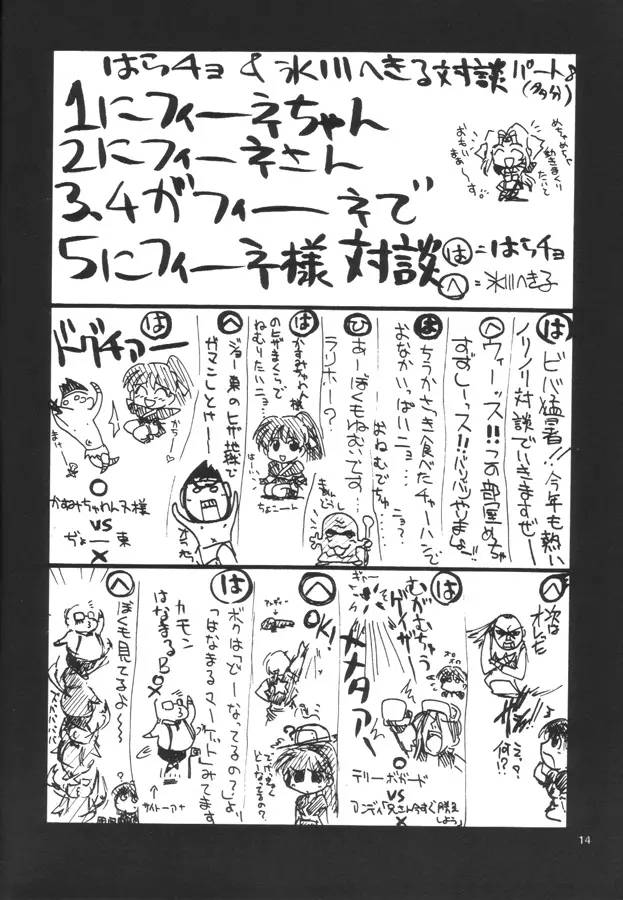 はらチョ & 氷川へきる対談パート8
(多分)
1にフィーネちゃん
2にフィーネさん
3、4がフィーネで
5にフィーネ様対談
めちゃめちゃ
動きまくり
たいて
おもい
まぁ〜す。
は=はらチョ
へ=氷川へき子
は ビバ猛暑!!今年も熱い
ノリノリ対談でいきますぜー
へ ウィーッス!!この部屋めちゃ
すずしーッス!!バリバリやりまひょ!!
は ちうかさっき食べたチャーハンで
おなかいっぱいニョ…
おねむでちゅ…
ニョ?
ひ あーぼくもねむいです…
ラリホー?
は かすみちゃん様
のヒザまくらで
ねむりたいニョ…
はーい
ちょこーん
へ ジョー東のヒザ地獄で
ガマンしとやー
は ドグチァー
かち♡
まけ
かすみちゃん様
○
VS
ぢょー東
×
へ 次は
オレだ
ザッ!!
えっ?
何!?
は むがむちゅう
ゲイザー
ギャー
オロオロ
ヤメタァー
○
テリーボガード
VS
アンディ「兄さん今すぐ豚まんしよう」
×
へ OK!
アンディー
どーなってるの?
は ボクは「どーなってるの?」より
「はなまるマーケット」みてます
カモン
はなまるB
○
×
↑
サイトーアナ
へ ぼくも見てるよ〜〜
14